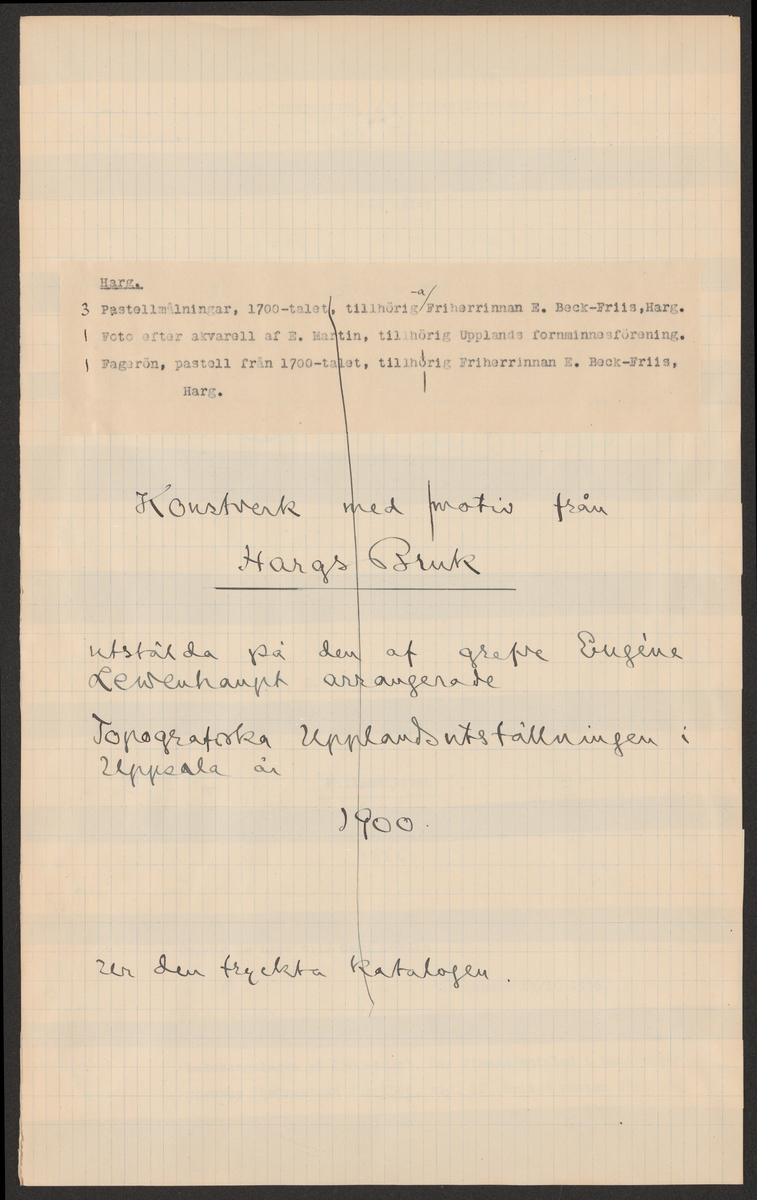 Harg.
3 Pastellmålningar, 1700-talet, tillhörig-a Friherrinnan E. Beck-Friis, Harg.
1 Foto efter akvarell af E. Martin, tillhörig Upplands fornminnesförening.
1 Fagerön, pastell från 1700-talet, tillhörig Friherrinnan E. Beck-Friis,
Harg.
Konstverk med motiv från
Hargs Bruk
utstälda på den af grefve Eugéne
Lewenhaupt arrangerade
Topografiska Upplandsutställningen i
Uppsala år
1900.
ur den tryckta katalogen.